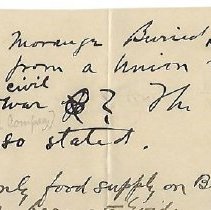 Morange Buried,
from a Union
civil
war ? The
so stated.
only food supply on B